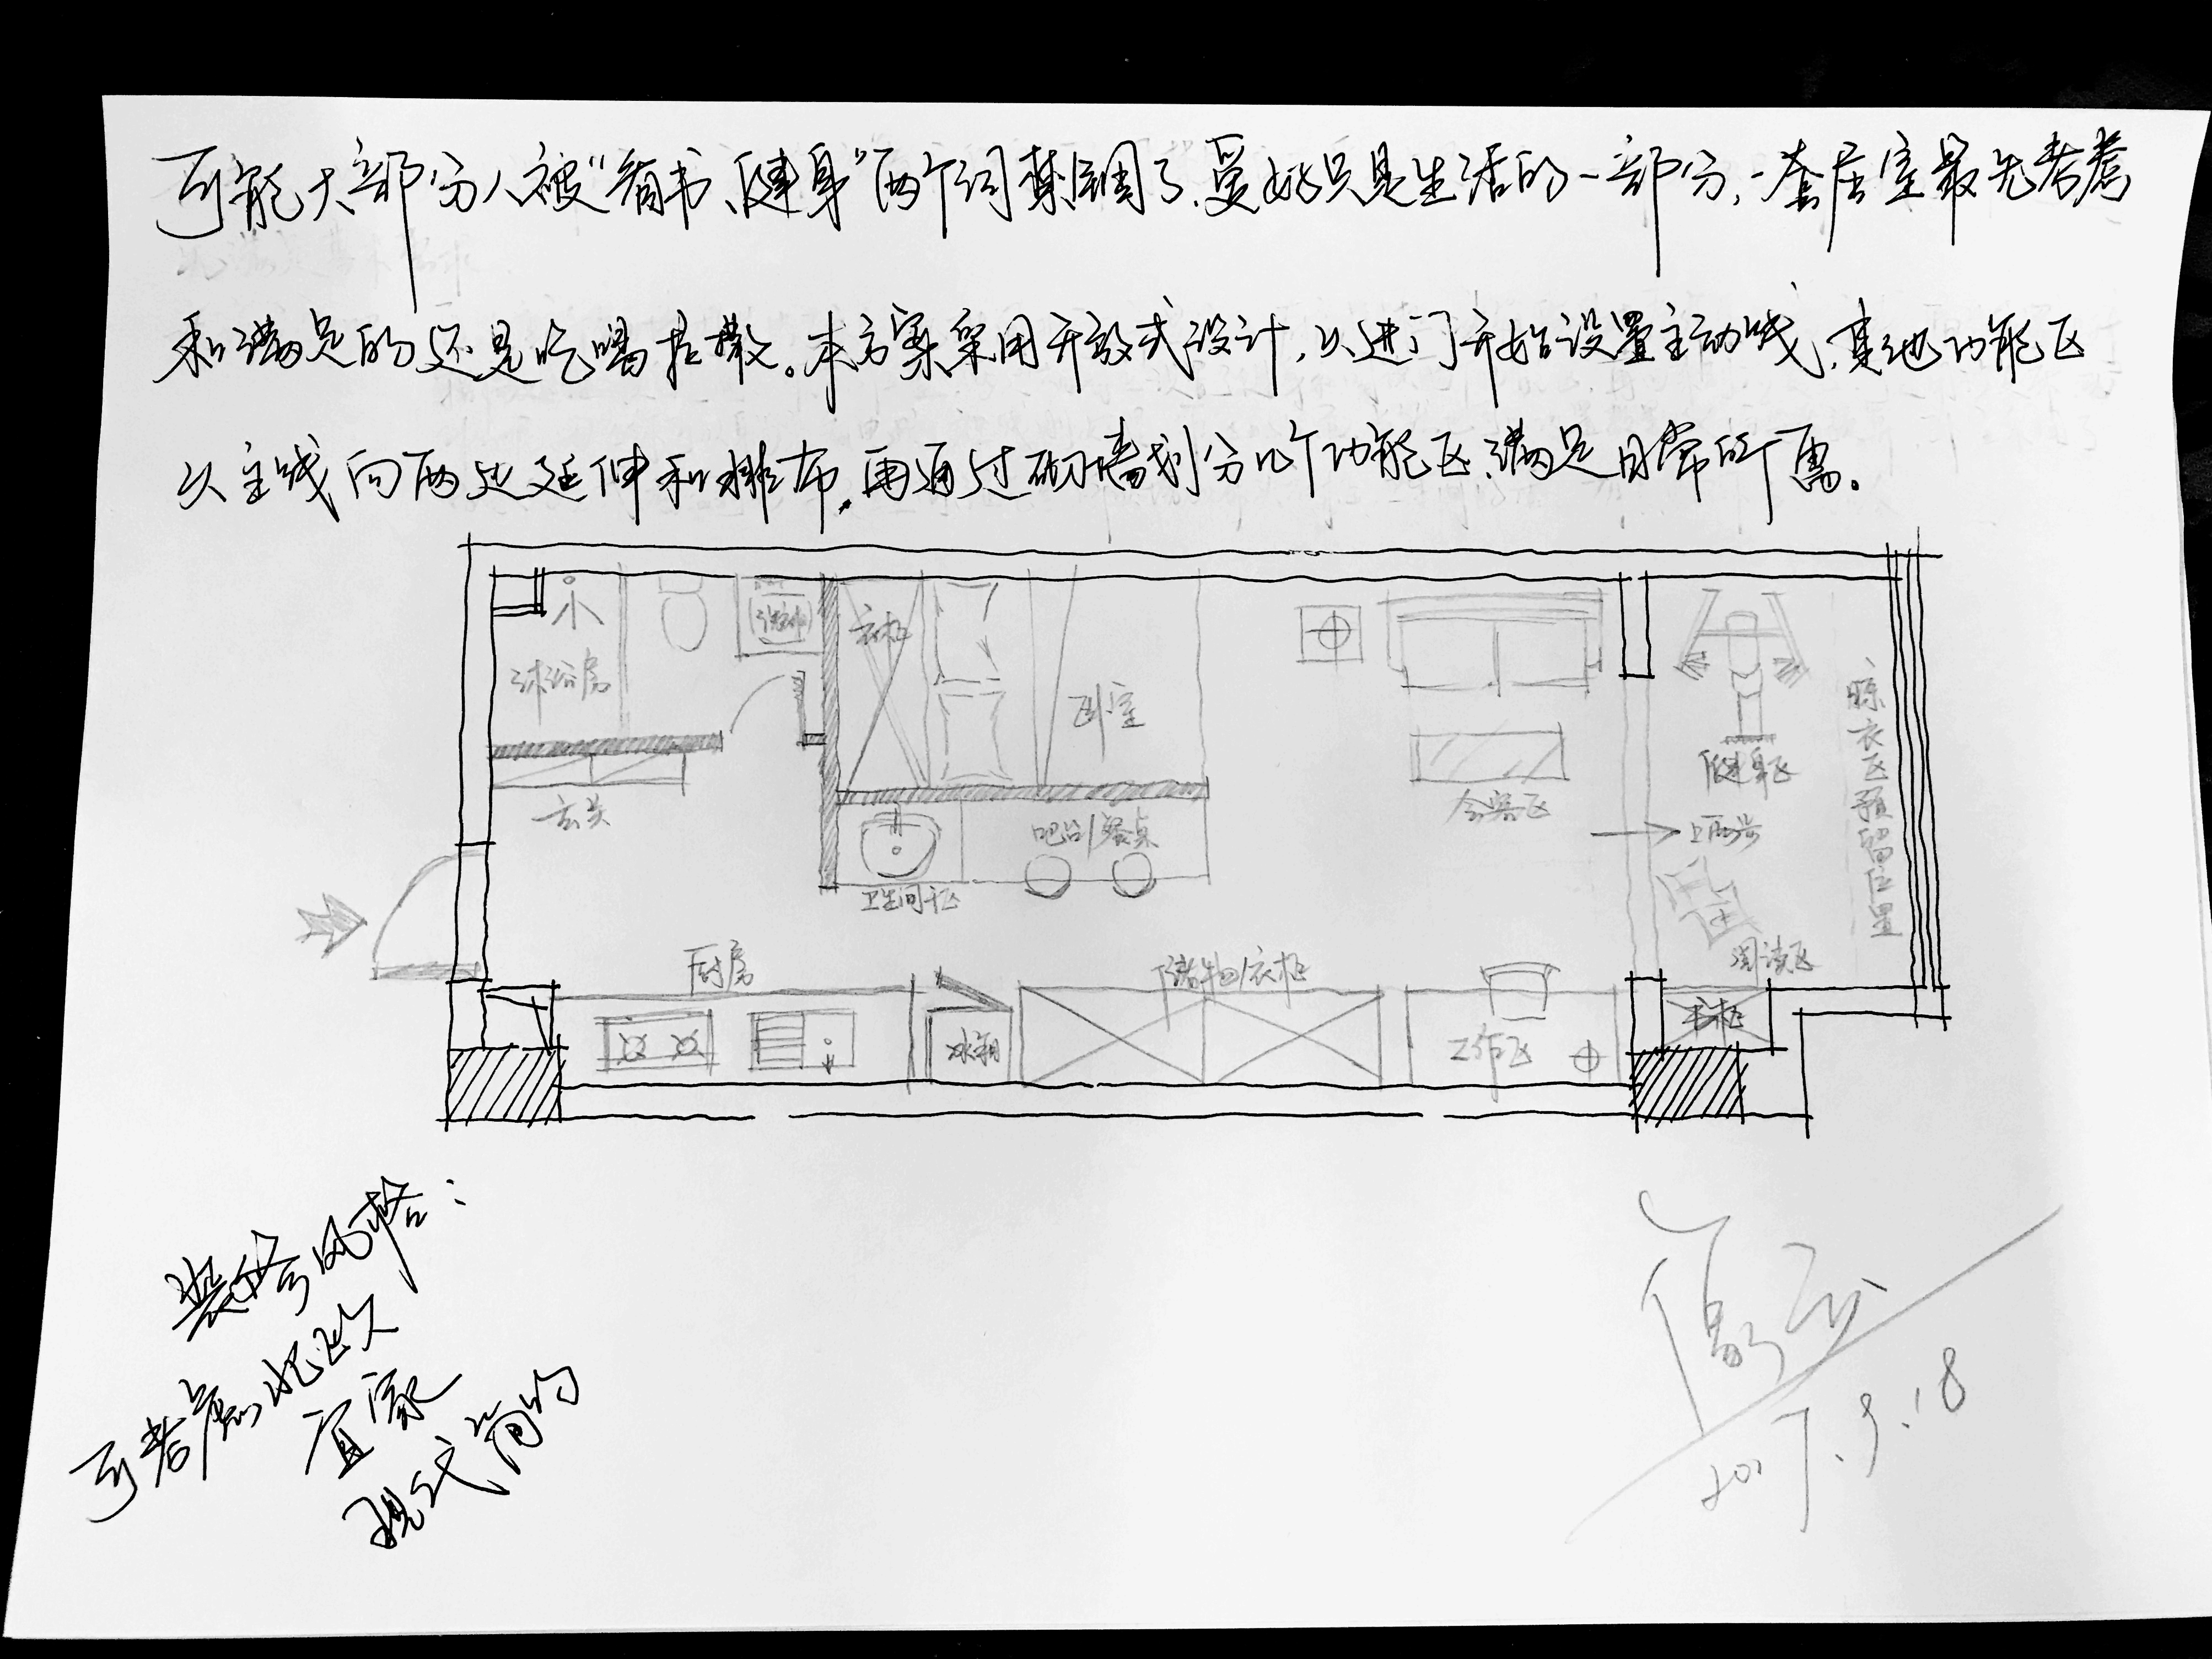 可能大部分人被“看书、健身”两个词禁锢了,爱好只是生活的一部分,一套居室最先考虑
和满足的还是吃喝拉撒。本方案采用开放式设计,以进门开始设置主动线,其他功能区
以主线向两边延伸和排布,再通过砌墙划分几个功能区,满足日常所需。
沐浴房
衣柜
卧室
玄关
卫生间干区
吧台/餐桌
会客区
健身区
上两步
晾衣区预留位置
阅读区
厨房
冰箱
储物/衣柜
工作区
书柜
装修风格:
可考虑:北欧
宜家
现代简约
2017.9.18